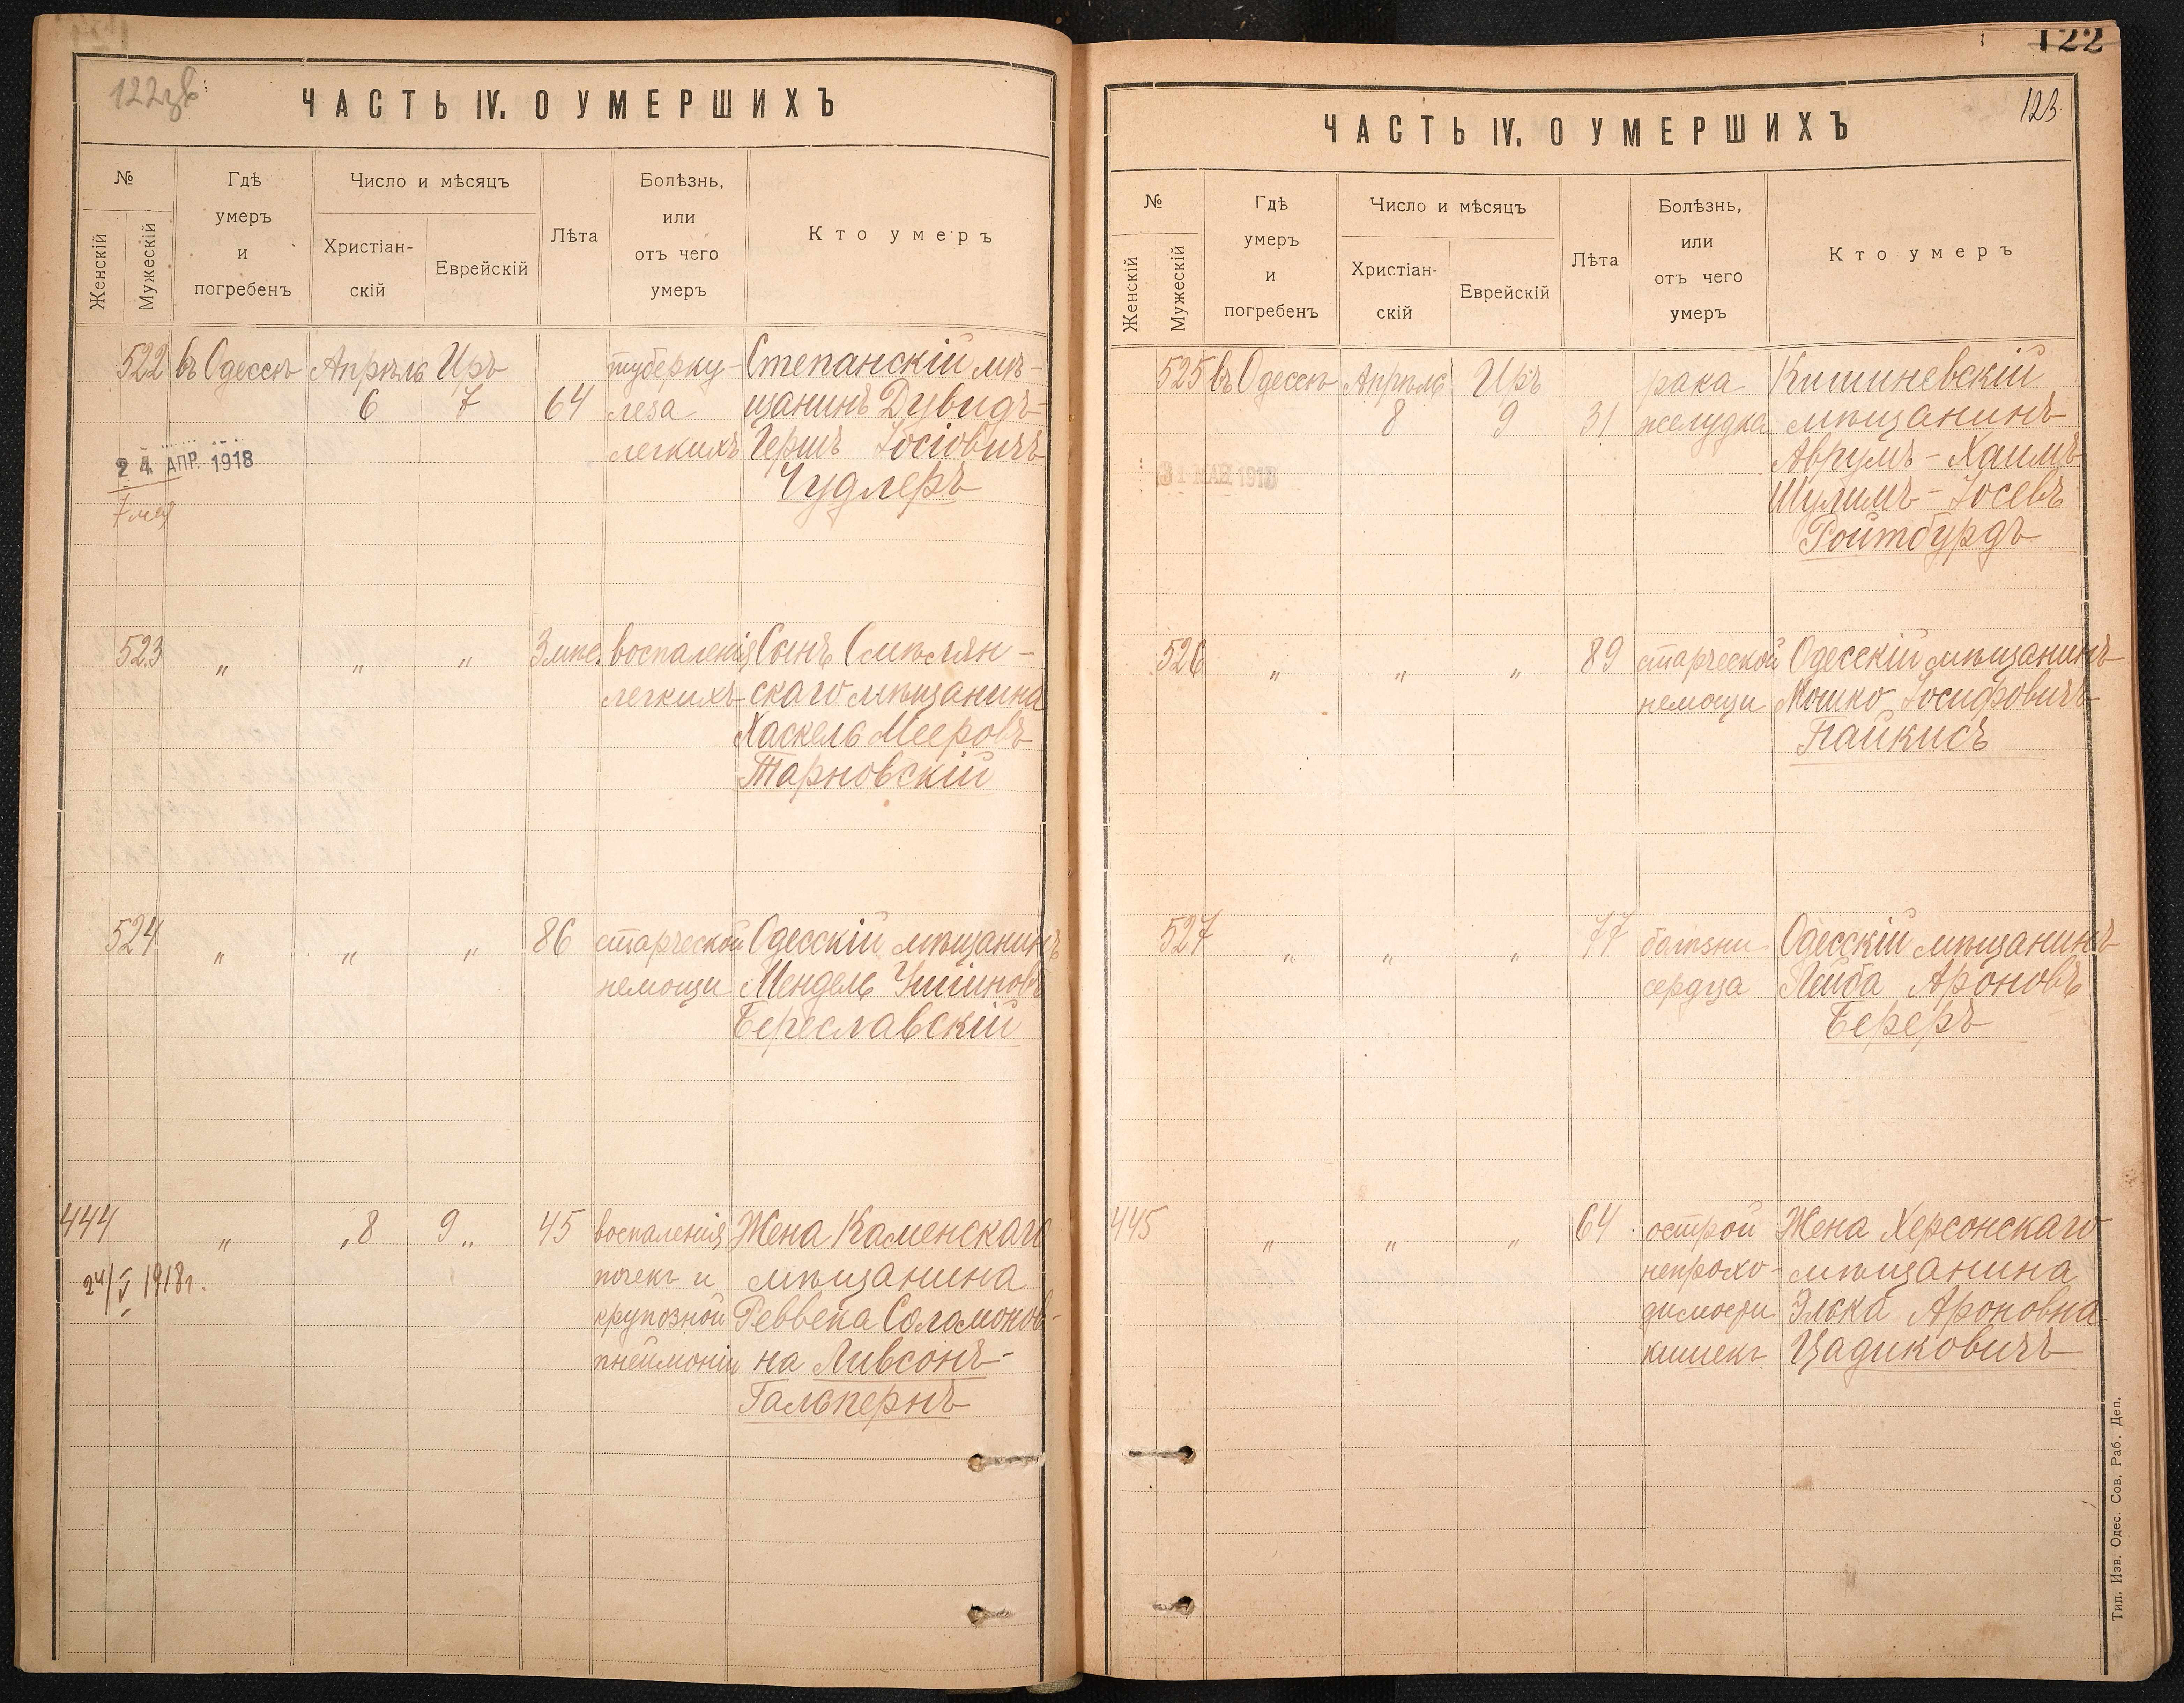 122 зв
ЧАСТЬ IV. О УМЕРШИХЪ
№
Женскій
Мужескій
Гдѣ
умеръ
и
погребенъ
Число и мѣсяцъ
Христіан-
скій
Еврейскій
Лѣта
Болѣзнь,
или
отъ чего
умеръ
Кто умеръ
522 въ Одессѣ Апрѣль Иръ туберку- Степанскій мѣ-
6 7 64 леза щанинъ Дувидъ-
легкихъ Гершъ Іосіовичъ
Чудлеръ
24 АПР. 1918
7 мая
523 „ „ „ 3 мѣс. воспаленія Сынъ Смѣлян-
легкихъ скаго мѣщанина
Хаскель Мееровъ
Тарновскій
524 „ „ „ 86 старческой Одесскій мѣщанинъ
немощи Мендель
Береславскій
444 „ „8 9„ 45 воспаленія Жена Каменскаго
24/V 1918г. почекъ и мѣщанина
крупозной Реввека Соломонов-
пнеймоніи на Ливсонъ-
Гальпернъ
122
123
ЧАСТЬ IV. О УМЕРШИХЪ
№
Женскій
Мужескій
Гдѣ
умеръ
и
погребенъ
Число и мѣсяцъ
Христіан-
скій
Еврейскій
Лѣта
Болѣзнь,
или
отъ чего
умеръ
Кто умеръ
525 въ Одессѣ Апрѣль Иръ рака Кишиневскій
8 9 31 желудка мѣщанинъ
Аврумъ-Хаимъ
31 МАЙ 1918
Шулимъ-Іосевъ
Ройтбурдъ
526 „ „ „ 89 старческой Одесскій мѣщанинъ
немощи Мошко Іосифовичъ
Пайкисъ
527 „ „ „ 77 болѣзни Одесскій мѣщанинъ
сердца Лейба Ароновъ
Береръ
445 „ „ „ 64 острой Жена Херсонскаго
непрохо- мѣщанина
димости Элька Ароновна
кишекъ Цадиковичъ
Тип. Изв. Одес. Сов. Раб. Деп.